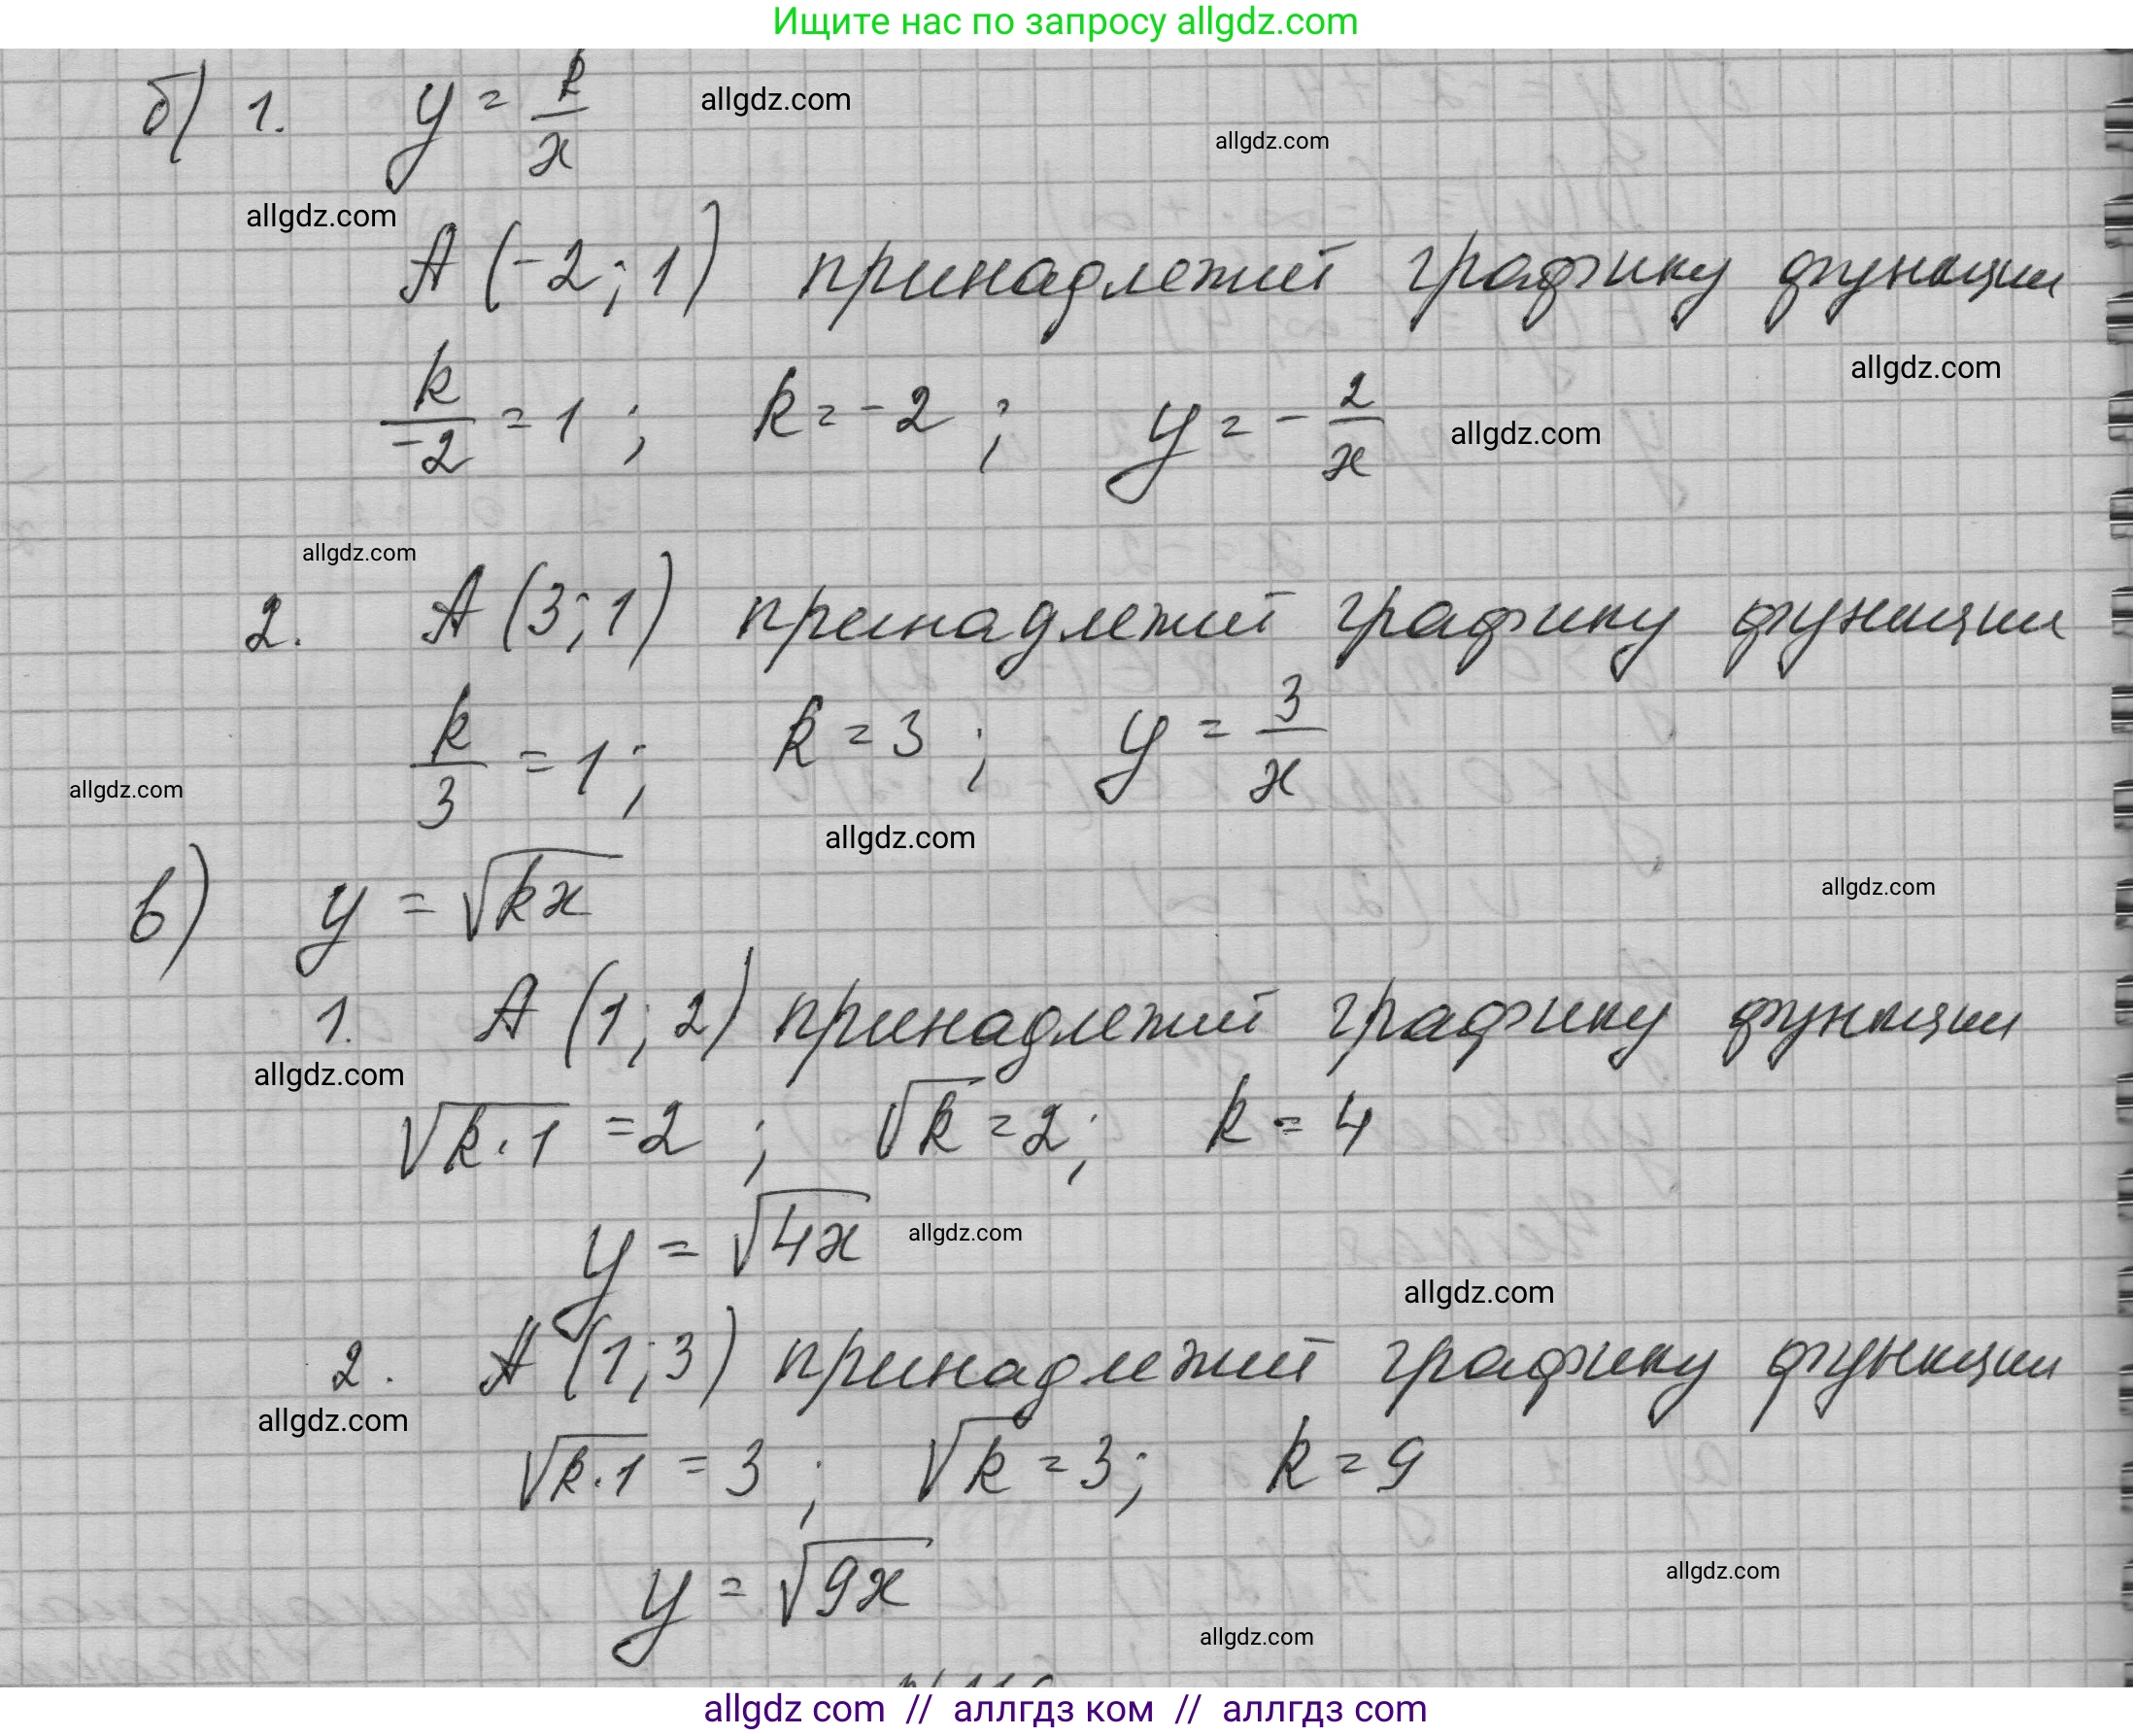 Ищите нас по запросу allgdz.com
б) 1. y = k/x
allgdz.com
allgdz.com
allgdz.com
A (-2; 1) принадлежит графику функции
allgdz.com
k/-2 = 1 ; k = -2 ; y = - 2/x
allgdz.com
allgdz.com
2. A (3; 1) принадлежит графику функции
k/3 = 1 ; k = 3 ; y = 3/x
allgdz.com
allgdz.com
allgdz.com
в) y = √kx
1. A (1; 2) принадлежит графику функции
allgdz.com
√k·1 = 2 ; √k = 2 ; k = 4
y = √4x
allgdz.com
allgdz.com
2. A (1; 3) принадлежит графику функции
allgdz.com
√k·1 = 3 ; √k = 3 ; k = 9
allgdz.com
y = √9x
allgdz.com
allgdz com // аллгдз ком // аллгдз com